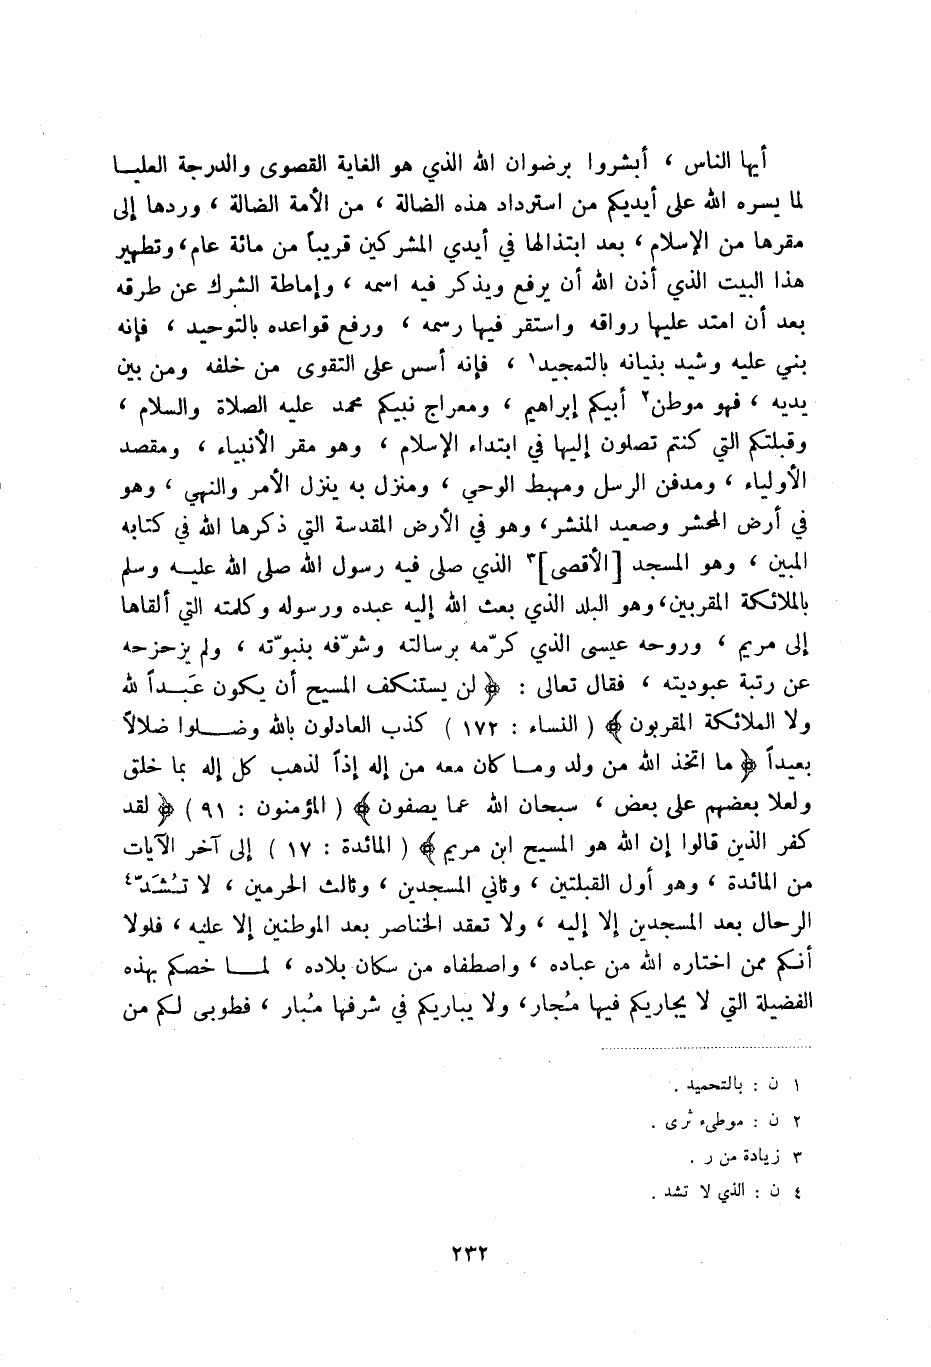 أيها الناس ، أبشروا برضوان الله الذي هو الغاية القصوى والدرجة العليـا
لما يسره الله على أيديكم من استرداد هذه الضالة ، من الأمة الضالة ، وردها إلى
مقرها من الإسلام ، بعد ابتذالها في أيدي المشركين قريباً من مائة عام ، وتطهير
هذا البيت الذي أذن الله أن يرفع ويذكر فيه اسمه ، وإماطة الشرك عن طرقه
بعد أن امتد عليها رواقه واستقر فيها رسمه ، ورفع قواعده بالتوحيد ، فإنه
بني عليه وشيد بنيانه بالتمجيد١ ، فإنه أسس على التقوى من خلفه ومن بين
يديه ، فهو موطن٢ أبيكم إبراهيم ، ومعراج نبيكم محمد عليه الصلاة والسلام ،
وقبلتكم التي كنتم تصلون إليها في ابتداء الإسلام ، وهو مقر الأنبياء ، ومقصد
الأولياء ، ومدفن الرسل ومهبط الوحي ، ومنزل به ينزل الأمر والنهي ، وهو
في أرض المحشر وصعيد المنشر ، وهو في الأرض المقدسة التي ذكرها الله في كتابه
المبين ، وهو المسجد [الأقصى]٣ الذي صلى فيه رسول الله صلى الله عليـه وسلم
بالملائكة المقربين ، وهو البلد الذي بعث الله إليه عبده ورسوله وكلمته التي ألقاها
إلى مريم ، وروحه عيسى الذي كرّمه برسالته وشرّفه بنبوّته ، ولم يزحزحه
عن رتبة عبوديته ، فقال تعالى : ﴿ لن يستنكف المسيح أن يكون عَبـداً لله
ولا الملائكة المقربون ﴾ ( النساء : ١٧٢ ) كذب العادلون بالله وضـلوا ضلالاً
بعيداً ﴿ ما اتخذ الله من ولد ومـا كان معه من إله إذاً لذهب كل إله بما خلق
ولعلا بعضهم على بعض ، سبحان الله عما يصفون ﴾ ( المؤمنون : ٩١ ) ﴿ لقد
كفر الذين قالوا إن الله هو المسيح ابن مريم ﴾ ( المائدة : ١٧ ) إلى آخر الآيات
من المائدة ، وهو أول القبلتين ، وثاني المسجدين ، وثالث الحرمين ، لا تُشَدّ٤
الرحال بعد المسجدين إلا إليه ، ولا تعقد الخناصر بعد الموطنين إلا عليه ، فلولا
أنكم ممن اختاره الله من عباده ، واصطفاه من سكان بلاده ، لمـا خصكم بهذه
الفضيلة التي لا يجاريكم فيها مُجار ، ولا يباريكم في شرفها مُبار ، فطوبى لكم من
١ ن : بالتحميد .
٢ ن : موطىء ثرى .
٣ زيادة من ر .
٤ ن : الذي لا تشد .
٢٣٢